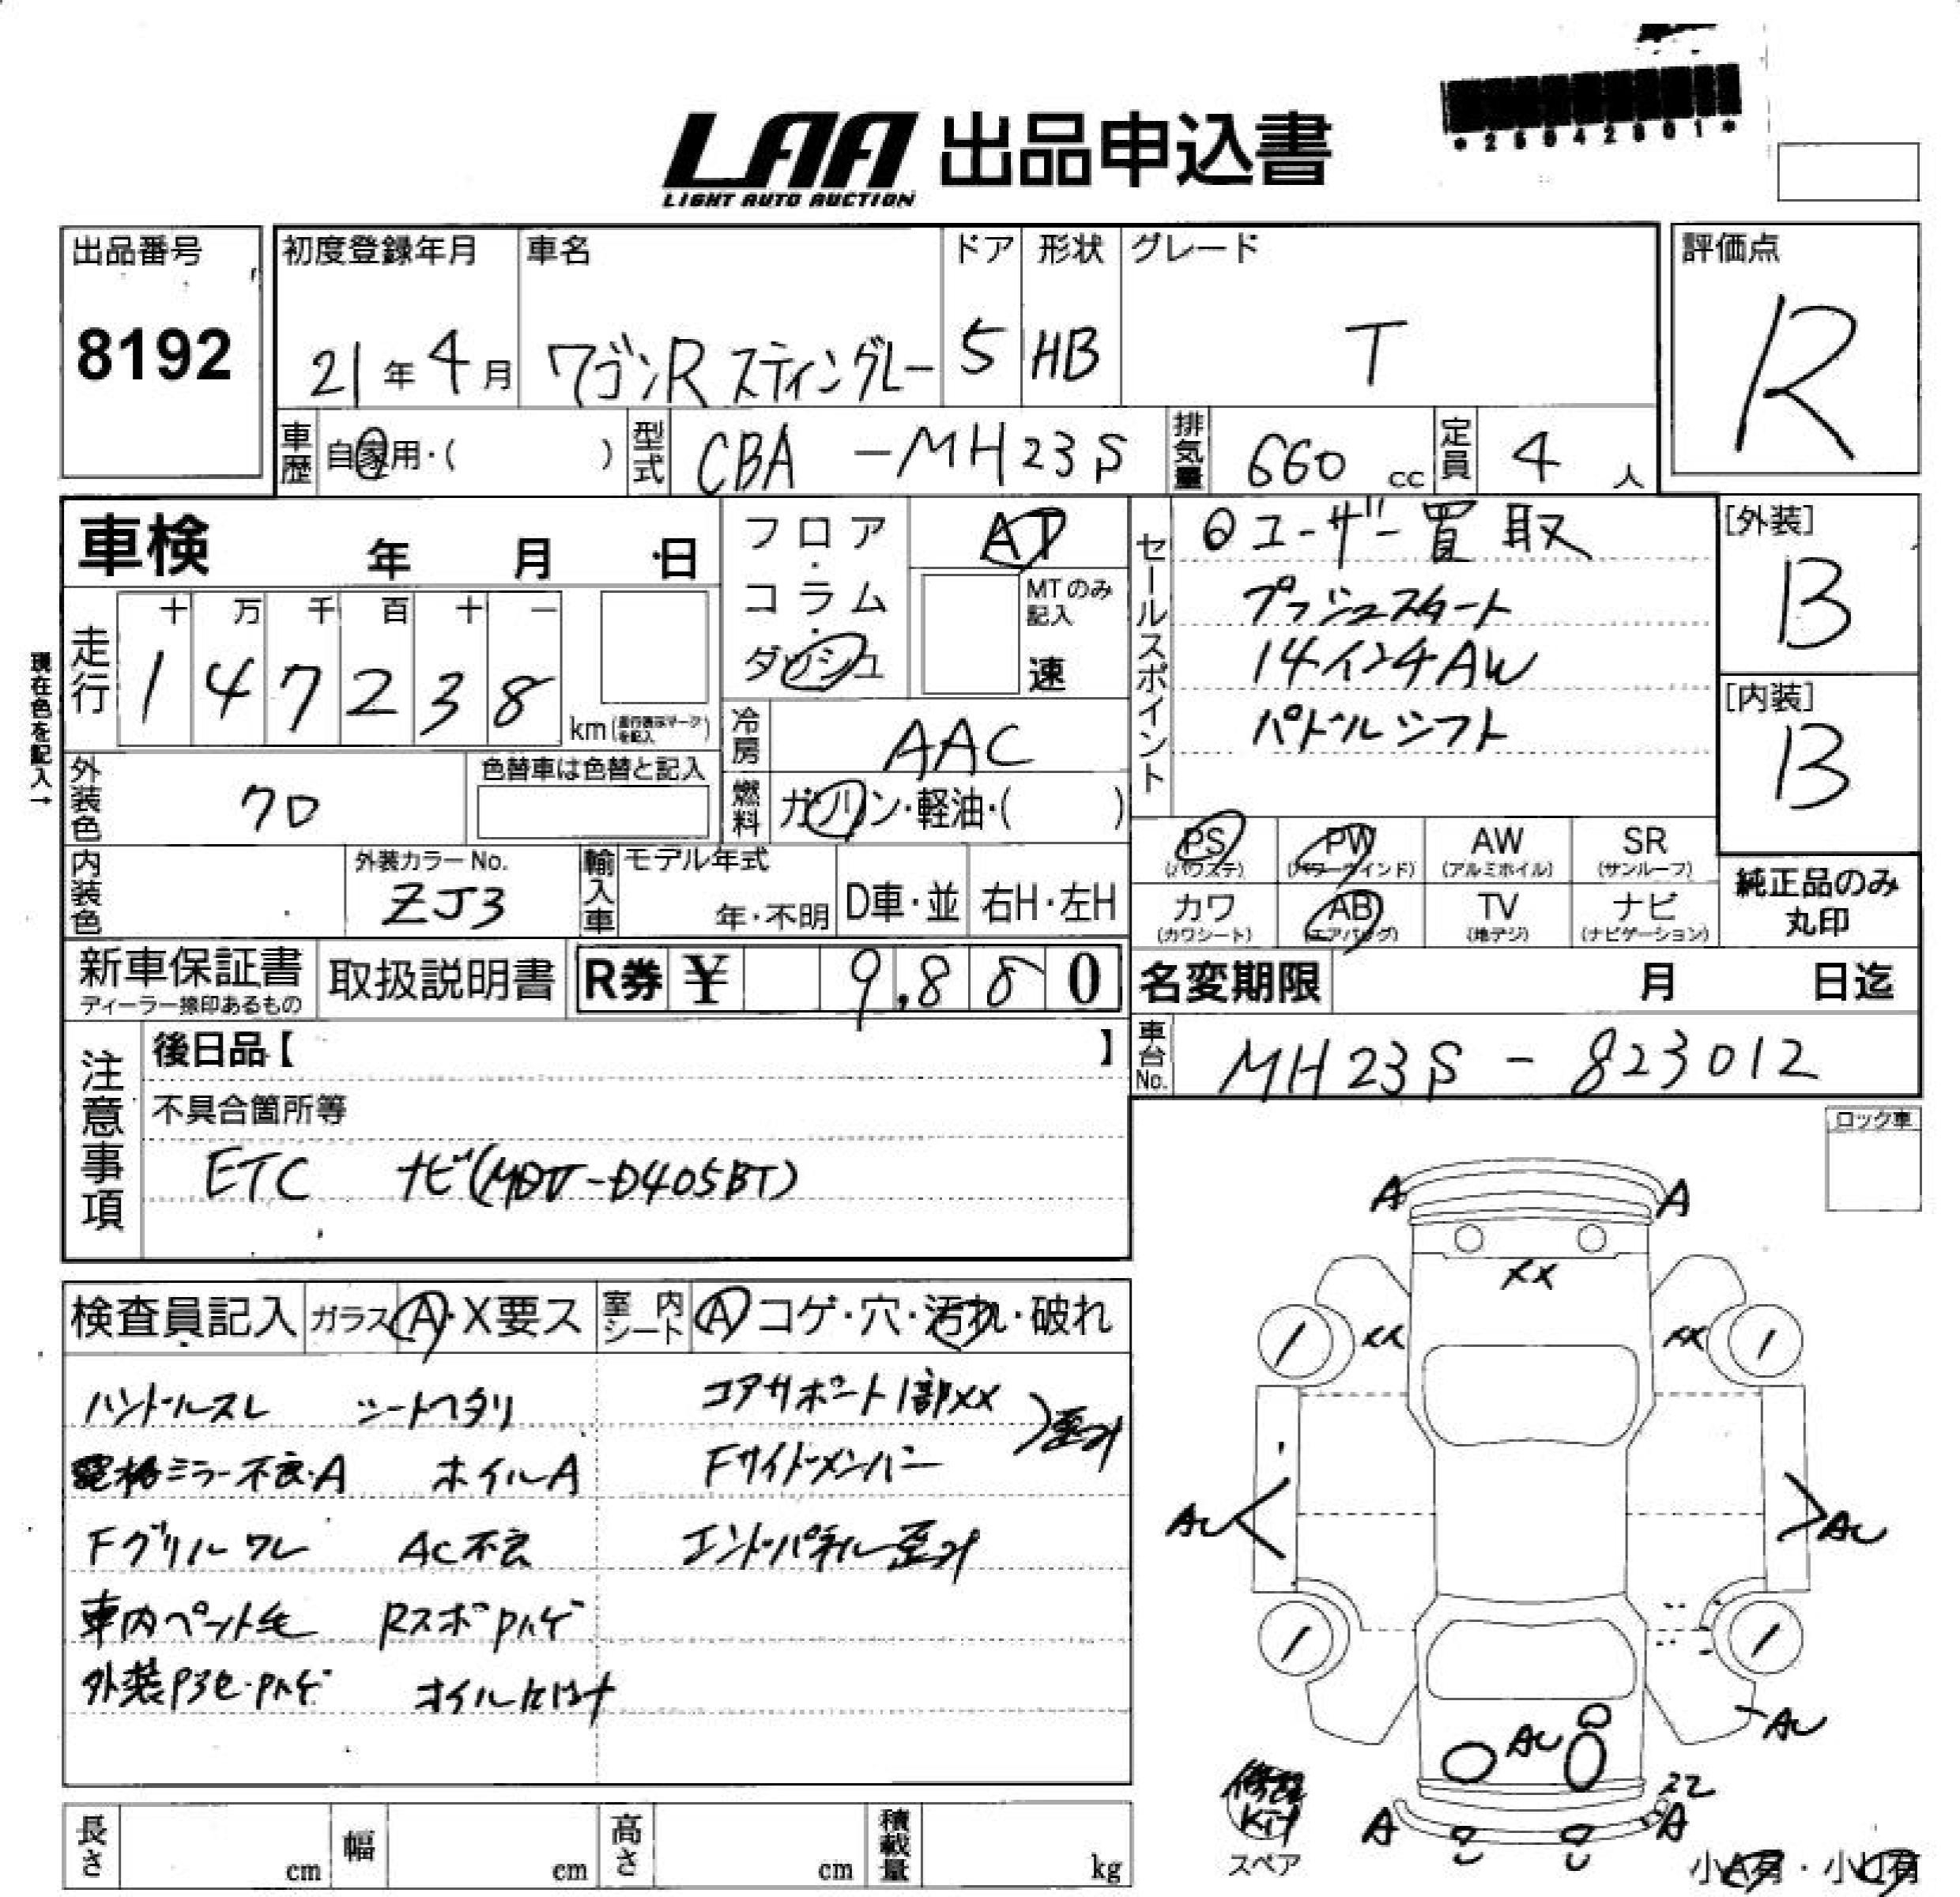 LAA 出品申込書
LIGHT AUTO AUCTION
*26042801*
出品番号 初度登録年月 車名 ドア 形状 グレード 評価点
8192 21年4月 ワゴンR スティングレー 5 HB T R
車歴 自家用・( ) 型式 CBA -MH23S 排気量 660 cc 定員 4 人
車検 年 月 日 フロア・コラム・ダッシュ AT MTのみ記入 速
セールスポイント
◎ユーザー買取
プッシュスタート
14インチAW
パドルシフト
[外装] B
[内装] B
現在色を記入→
走行 十 万 千 百 十 一
1 4 7 2 3 8 km(走行表示マークを記入)
冷房 AAC
外装色 クロ 色替車は色替と記入
燃料 ガソリン・軽油・( )
PS (パワステ) PW (パワーウインド) AW (アルミホイル) SR (サンルーフ)
カワ (カワシート) AB (エアバッグ) TV (地デジ) ナビ (ナビゲーション)
純正品のみ丸印
内装色 外装カラーNo. ZJ3 輸入車 モデル年式 年・不明 D車・並 右H・左H
新車保証書 ディーラー捺印あるもの 取扱説明書 R券 ¥ 9,880 名変期限 月 日迄
注意事項
後日品【 】
車台No. MH23S - 823012
不具合箇所等
ETC ナビ(MDV-D405BT)
ロック車
検査員記入 ガラス A・X要ス 室内シート A コゲ・穴・汚れ・破れ
ハンドルスレ シートヘタリ コアサポート1部XX
歪み
電格ミラー不良・A ホイルA Fサイドメンバー
Fグリルワレ AC不良 エンドパネル歪み
車内ペット毛 Rスポ Pハゲ
外装P3セ・Pハゲ オイルにじみ
A A
XX
XX XX
AU AU
AU
AU
22
A A
修理Kit
スペア
小A有・小U有
長さ cm 幅 cm 高さ cm 積載量 kg